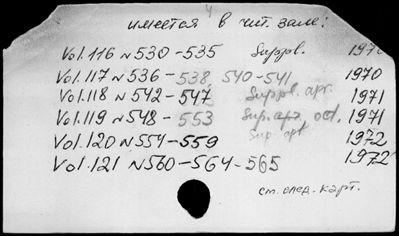 имеется в чит. зале:
Vol. 116 N 530-535 Suppl. 1970
Vol. 117 N 536-538, 540-541 1970
Vol. 118 N 542-547 Suppl. apr. 1971
Vol. 119 N 548-553 Sup. apr. oct. 1971
Vol. 120 N 554-559 Sup. apr 1972
Vol. 121 N 560-564-565 1972
см. след. карт.